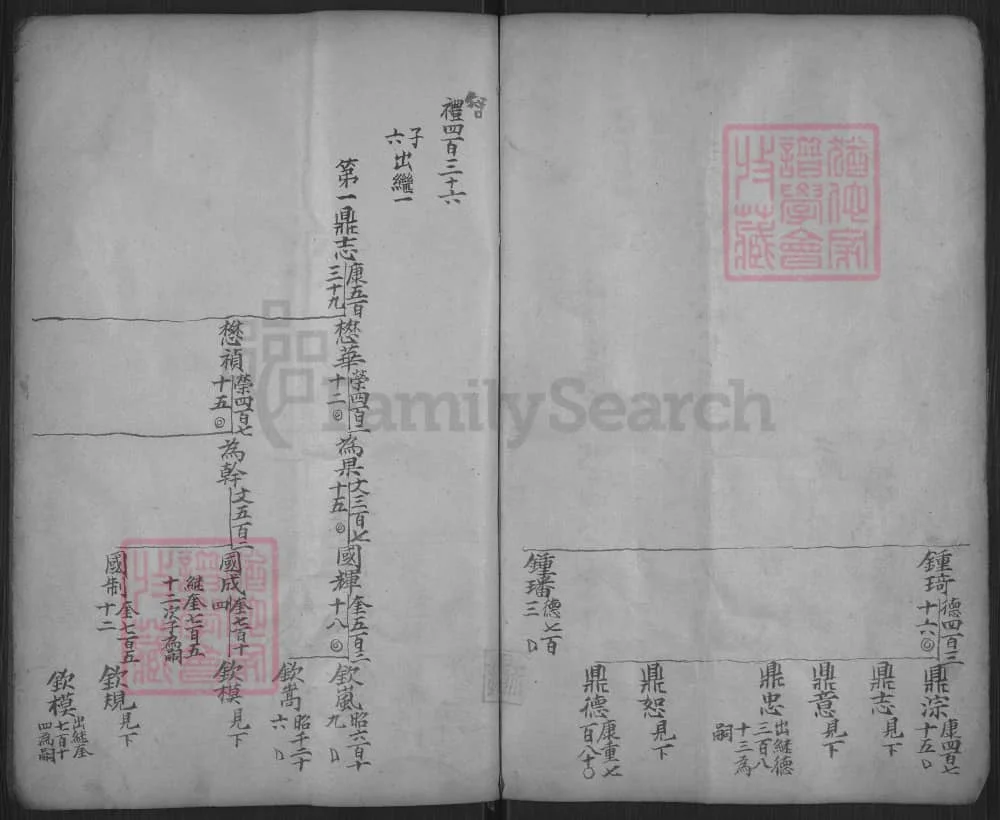 鍾琦德四百二十六
鼎淙康四百七十五
鼎志見下
鼎意見下
鼎忠出継德三百八十三為嗣
鼎恕見下
鍾璠德七百三
鼎德康重七百八十
禮四百三十六
子六出繼一
第一鼎志康五百三十九
懋華榮四百二十二
為果文三百七十五
國輝奎五百二十八
欽嵐昭六百十九
欽嵩昭千二十六
懋禎榮四百七十五
為幹文五百二
國成奎七百十四
継奎七百五十二次子為嗣
欽模見下
國制奎七百五十二
欽規見下
欽模出継奎七百十四為嗣
猶他家譜學會收藏
FamilySearch